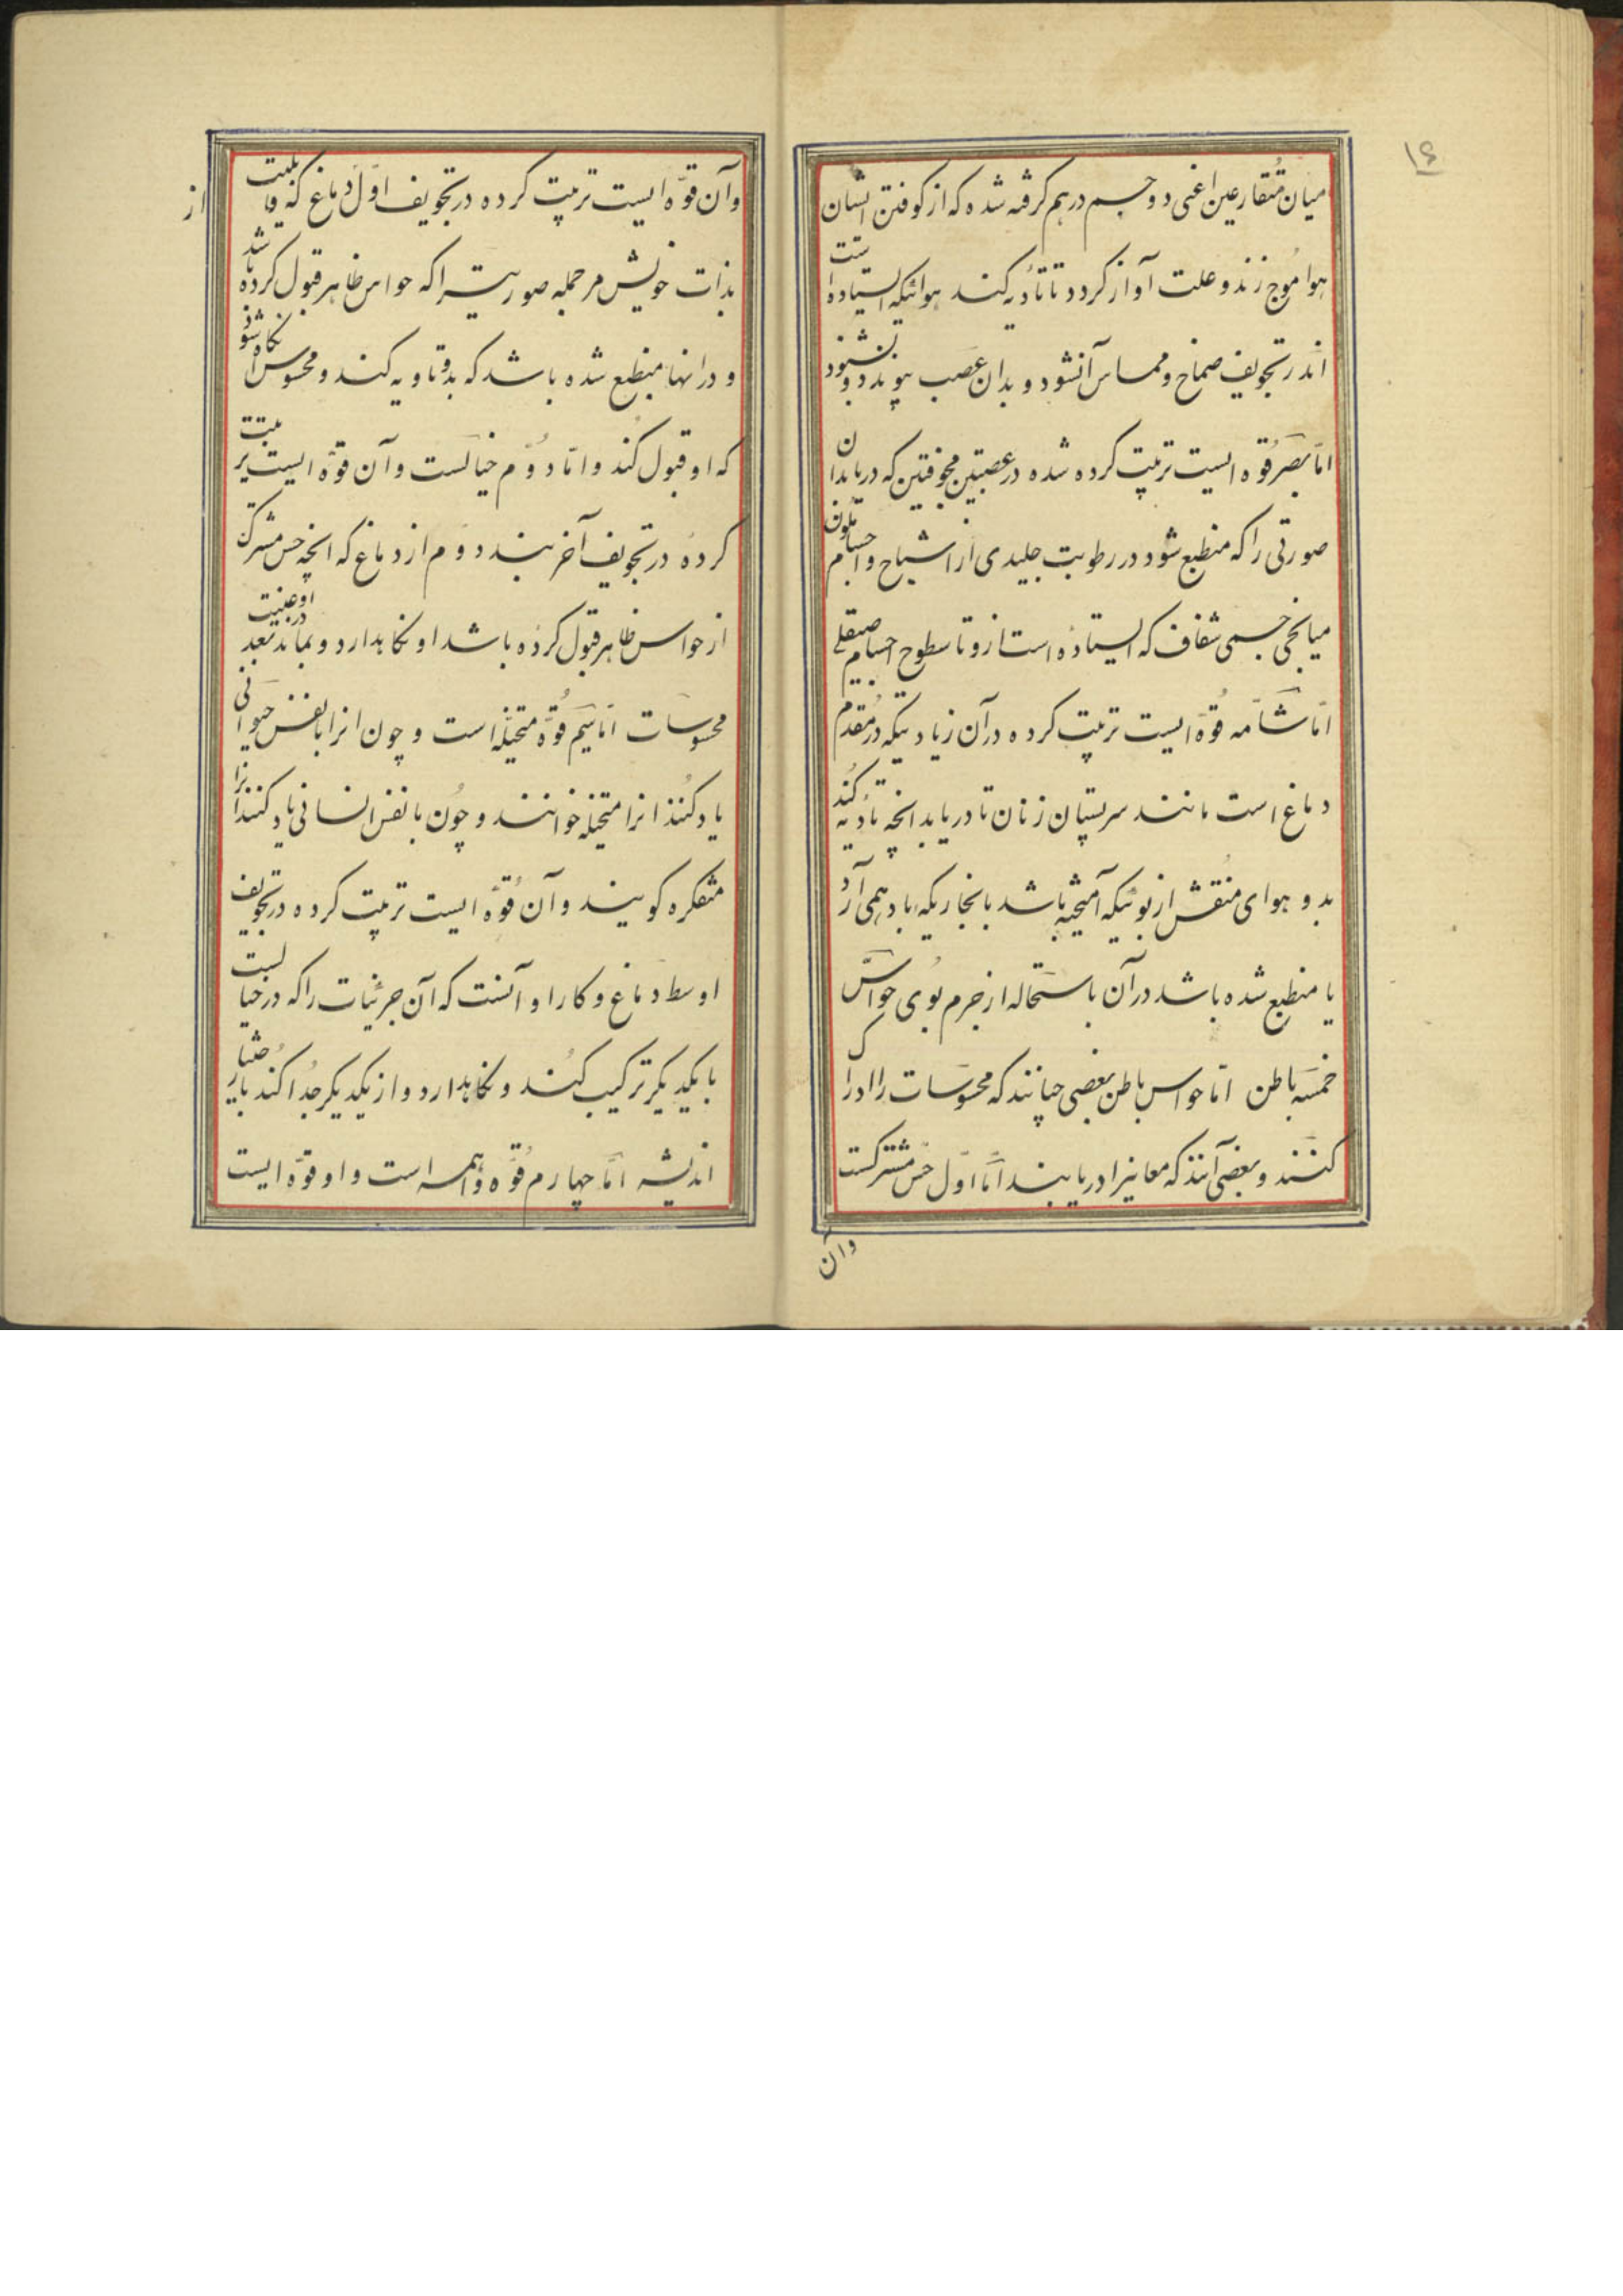 ۱۶
میان متقارعین اعنی دو جسم درهم کرفته شده که از کوفتن ایشان
هوا موج زند و علت آواز کردد تا تأدیه کند هوائیکه ایستاده است
اندر تجویف صماخ و مماس آنشود و بدان عصب پیوندد و بشنود
اما بصر قوه ایست ترتیب کرده شده در عصبتین مجوفتین که دریابد آن
صورتی را که منطبع شود در رطوبت جلیدی از اشباح و اجسام ملون
میانجی جسمی شفاف که ایستاده است ازو تا سطوح اجسام صیقلی
اما شامه قوه ایست ترتیب کرده در آن زیادتیکه در مقدم
دماغ است مانند سر پستان زنان تا دریابد انچه تأدیه کند
بدو هوای متنفس از بوئیکه آمیخته باشد با بخاریکه باد همی آرد
یا منطبع شده باشد در آن باستحاله از جرم بوی حواس
خمسه باطن اما حواس باطن بعضی چنانند که محسوسات را ادراک
کنند و بعضی آنند که معانیرا دریابند اما اول حس مشترکست
وآن
وآن قوه ایست ترتیب کرده در تجویف اول دماغ که قابلیت
بذات خویش مر جمله صورتیستراکه حواس ظاهر قبول کرده باشد
و درانها منطبع شده باشد که بدو تاویه کند و محسوس آنگاه شود
که او قبول کند و اما دوم خیالست وآن قوه ایست ترتیب
کرده در تجویف آخر بیند دوم از دماغ که انچه حس مشترک
از حواس ظاهر قبول کرده باشد او نکاهدارد و بماند درو بعد غیبت
محسوسات اما سیم قوه متخیله است و چون انرا با نفس حیوانی
یاد کنند انرا متخیله خوانند و چون با نفس انسانی یاد کنند انرا
متفکره کویند وآن قوه ایست ترتیب کرده در تجویف
اوسط دماغ و کار او آنست که آن جزئیات را که در خیالست
با یکدیکر ترکیب کند و نکاهدارد و از یکدیکر جدا کند باختیار
اندیشه اما چهارم قوه واهمه است و او قوه ایست
از